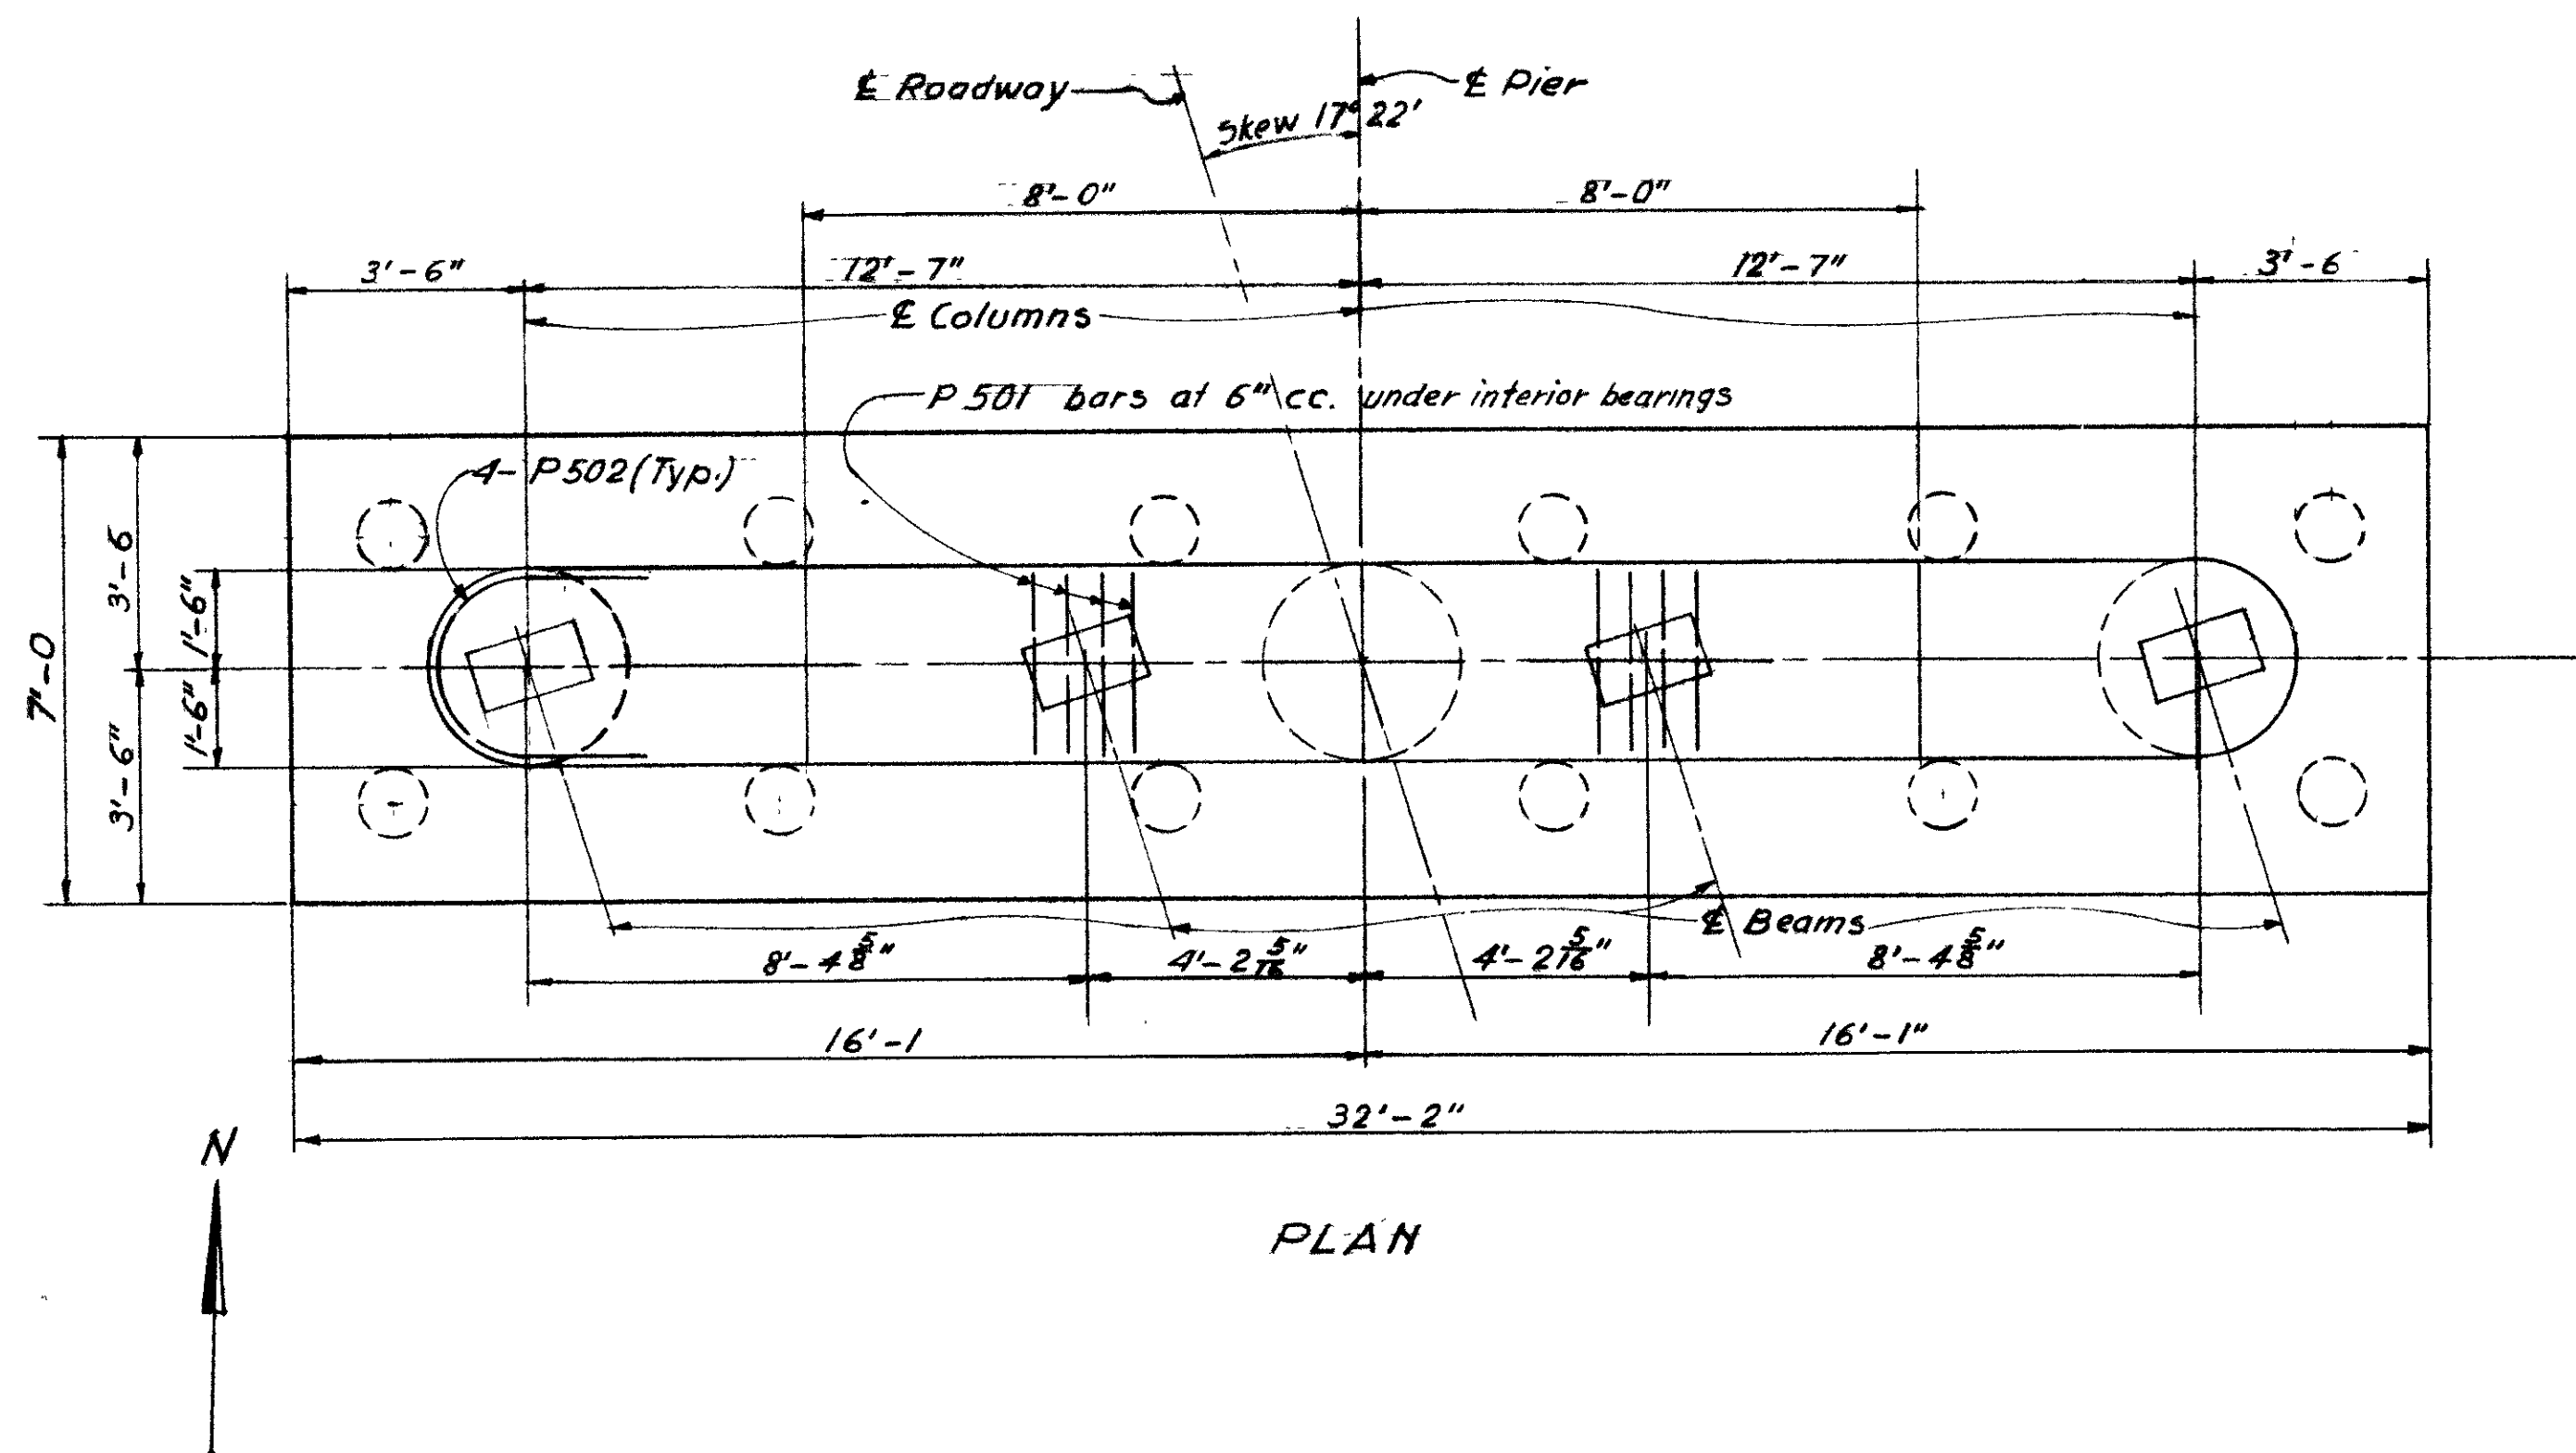 ℄ Roadway
℄ Pier
Skew 17° 22'
8'-0"
8'-0"
3'-6"
12'-7"
12'-7"
3'-6
℄ Columns
P 501 bars at 6" cc. under interior bearings
4- P502 (Typ.)
7'-0
3'-6
3'-6"
1'-6"
1'-6"
℄ Beams
8'-4 5/8"
4'-2 5/16"
4'-2 5/16"
8'-4 5/8"
16'-1
16'-1"
32'-2"
N
PLAN